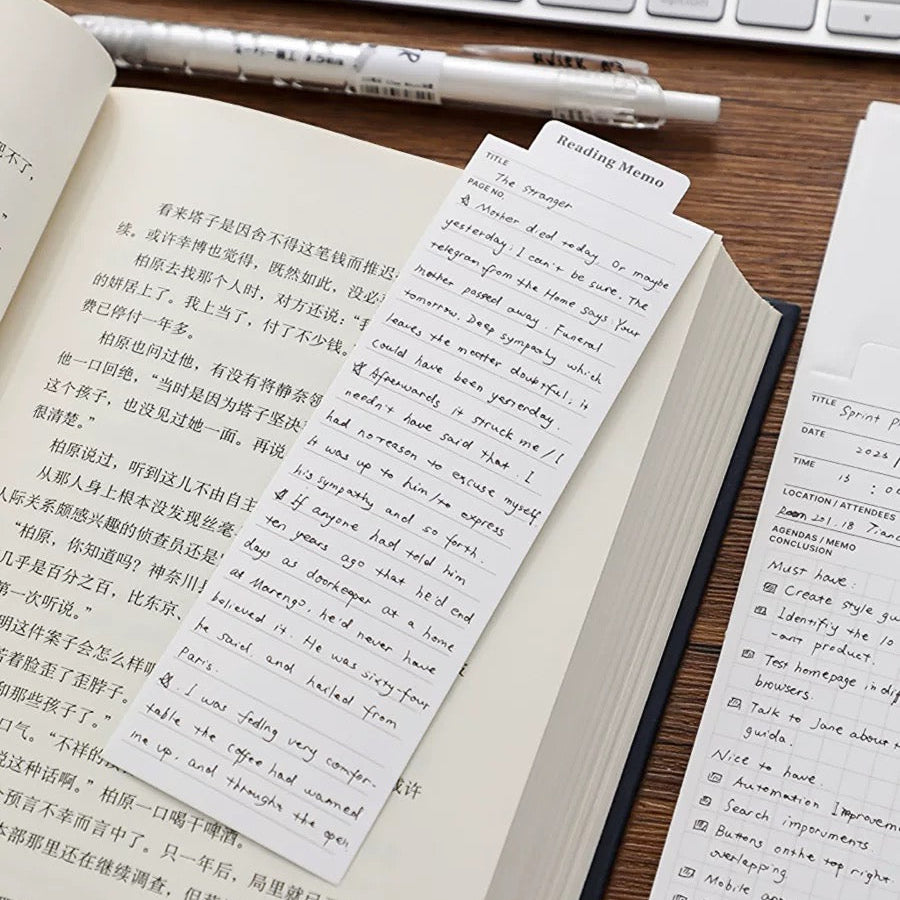 看来塔子是因舍不得这笔钱而推迟
续。或许幸博也觉得，既然如此，没必
柏原去找那个人时，对方还说：“我
的姘居上了。我上当了，付了不少钱。
费已停付一年多。
柏原也问过他，有没有将静奈领
他一口回绝，“当时是因为塔子坚决
这个孩子，也没见过她一面。再说
很清楚。”
柏原说过，听到这儿不由自主
从那人身上根本没发现丝毫
人际关系颇感兴趣的侦查员还是
“柏原，你知道吗？神奈川县
几乎是百分之百，比东京、
第一次听说。”
明这件案子会怎么样呢
着脸歪了歪脖子。
和那些孩子了。”
口气。“不祥的
说这种话啊。”柏原一口喝干啤酒。
个预言不幸而言中了。只一年后，局里就
本部那里还在继续调查，但
或许
把不了，
Reading Memo
TITLE
The Stranger
PAGE NO
Mother died today. Or maybe
yesterday; I can't be sure. The
telegram from the Home says Your
mother passed away. Funeral
tomorrow. Deep sympathy which
leaves the matter doubtful; it
could have been yesterday.
Afterwards it struck me / I
needn't have said that. I
had no reason to excuse myself.
it was up to him / to express
his sympathy and so forth.
If anyone had told him
ten years ago that he'd end
days as doorkeeper at a home
at Marengo, he'd never have
believed it. He was sixty-four
he said and hailed from
Paris.
I was feeling very comfor-
table the coffee had warmed
me up, and through the open
TITLE
Sprint
DATE
TIME
LOCATION / ATTENDEES
Room 201. 18
AGENDAS / MEMO
CONCLUSION
Must have:
Create style
Identifiy the 10
product.
Test homepage in
browsers.
Talk to Jane about
guida.
Nice to have
Automation
Search imporuments.
Buttons on the top right
overlapping
Mobile